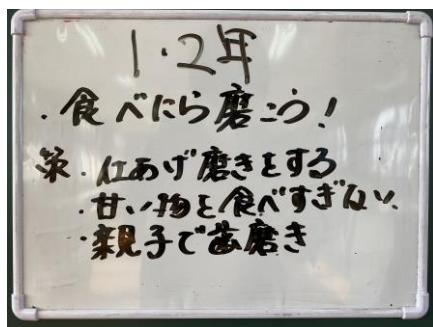 1・2年
・食べたら磨こう!
家・仕あげ磨きをする
・甘い物を食べすぎない、
・親子で歯磨き